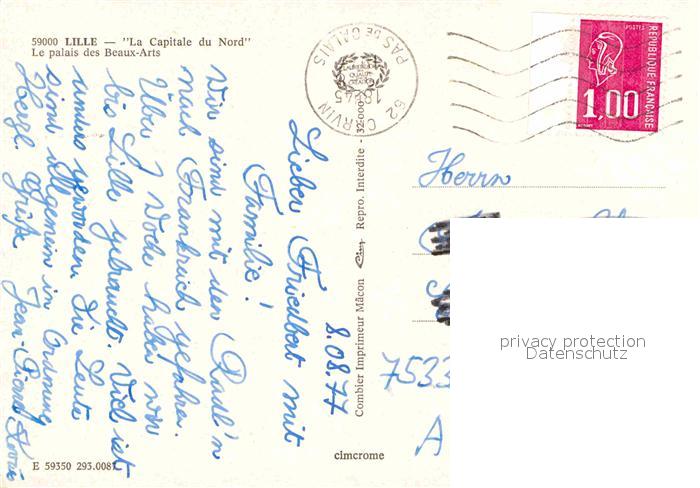 59000 LILLE — "La Capitale du Nord"
Le palais des Beaux-Arts
8.08.77
Lieber Friedbert mit
Familie!
Wir sind mit den Radl'n
nach Frankreich gefahren.
Über 1 Woche haben wir
bis Lille gebraucht. Viel ist
anders geworden. Die Leute
sind allgemein in Ordnung
Herzl. Grüße Jean-Pierre
E 59350 293.0081
cimcrome
Combier Imprimeur Mâcon Cim Repro. Interdite - 32-000
62 CARVIN
PAS DE CALAIS
18H45
POSTES
REPUBLIQUE FRANÇAISE
1,00
Herrn
7533
A
privacy protection
Datenschutz